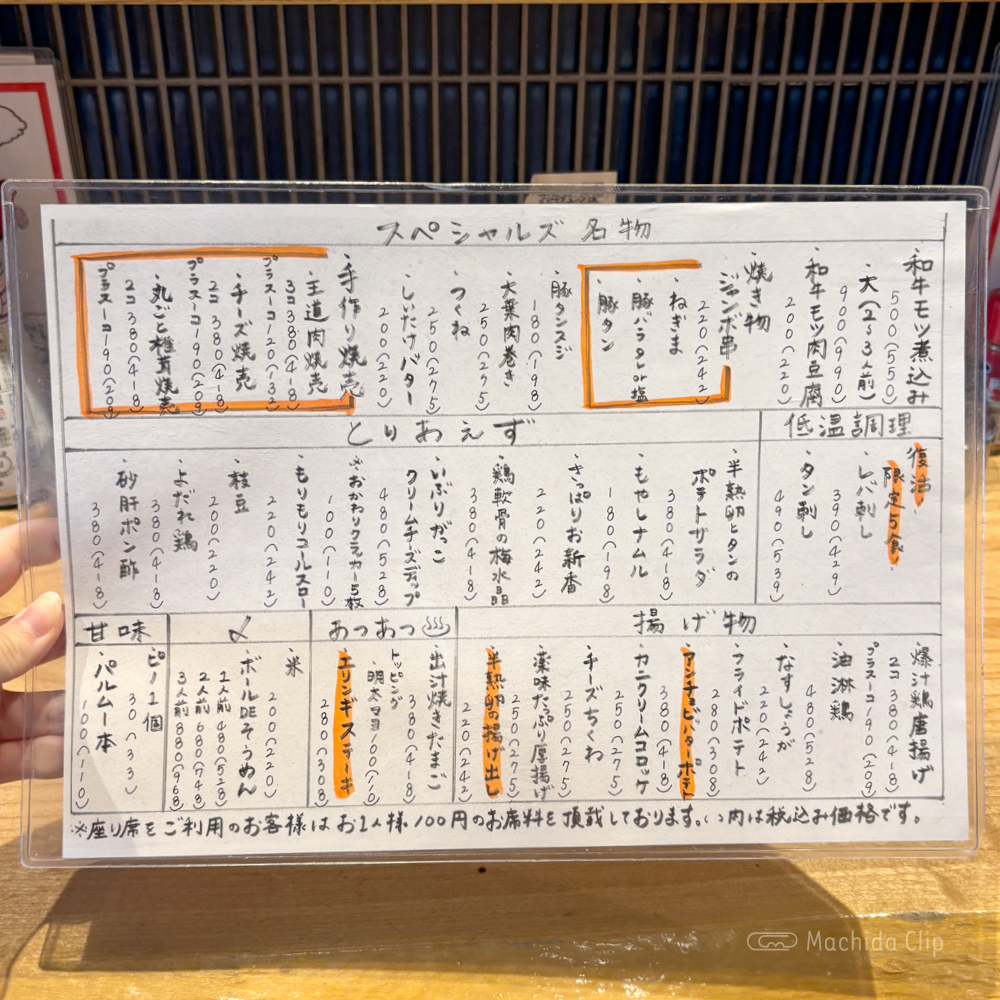 スペシャルズ 名物
和牛モツ煮込み
500(550)
・大(2~3人前)
900(990)
・和牛モツ肉豆腐
200(220)
・焼き物
ジャンボ串
220(242)
・ねぎま
・豚バラタレor塩
・豚タン
・豚タンスジ
180(198)
・大葉肉巻き
250(275)
・つくね
・しいたけバター
250(275)
200(220)
・手作り焼売
・王道肉焼売
3コ380(418)
プラス一コ120(
・チーズ焼売
2コ380(418)
プラス一コ190(209
・丸ごと椎茸焼売
2コ380(418)
プラス一コ190(209
低温調理
復活!
限定5食
・レバ刺し
390(429)
・タン刺し
490(539)
とりあえず
・半熟卵とタンの
ポテトサラダ
380(418)
・もやしナムル
180(198)
・さっぱりお新香
220(242)
・鶏軟骨の梅水晶
380(418)
・いぶりがっこ
クリームチーズディップ
480(528)
※おかわりクラッカー5枚
100(110)
・もりもりコールスロー
220(242)
・枝豆
200(220)
・よだれ鶏
380(418)
・砂肝ポン酢
380(418)
揚げ物
・爆汁鶏唐揚げ
2コ380(418)
プラス一コ190(209
・油淋鶏
480(528)
・なすしょうが
220(242)
・フライドポテト
280(308)
・アンチョビバタポテト
380(418)
・カニクリームコロッケ
250(275)
・チーズちくわ
250(275)
・薬味たっぷり厚揚げ
250(275)
・半熟卵の揚げ出し
220(242)
あつあつ♨
・出汁焼きたまご
380(418)
トッピング
・明太マヨ100(110
・エリンギステーキ
280(308)
〆
・米
200(220)
・ボールDEそうめん
1人前480(528
2人前680(748
3人前880(968)
甘味
・ピノ1個
30(33)
・パルム一本
100(110)
※座り席をご利用のお客様はお1人様100円のお席料を頂戴しております。()内は税込み価格です。
Machida Clip